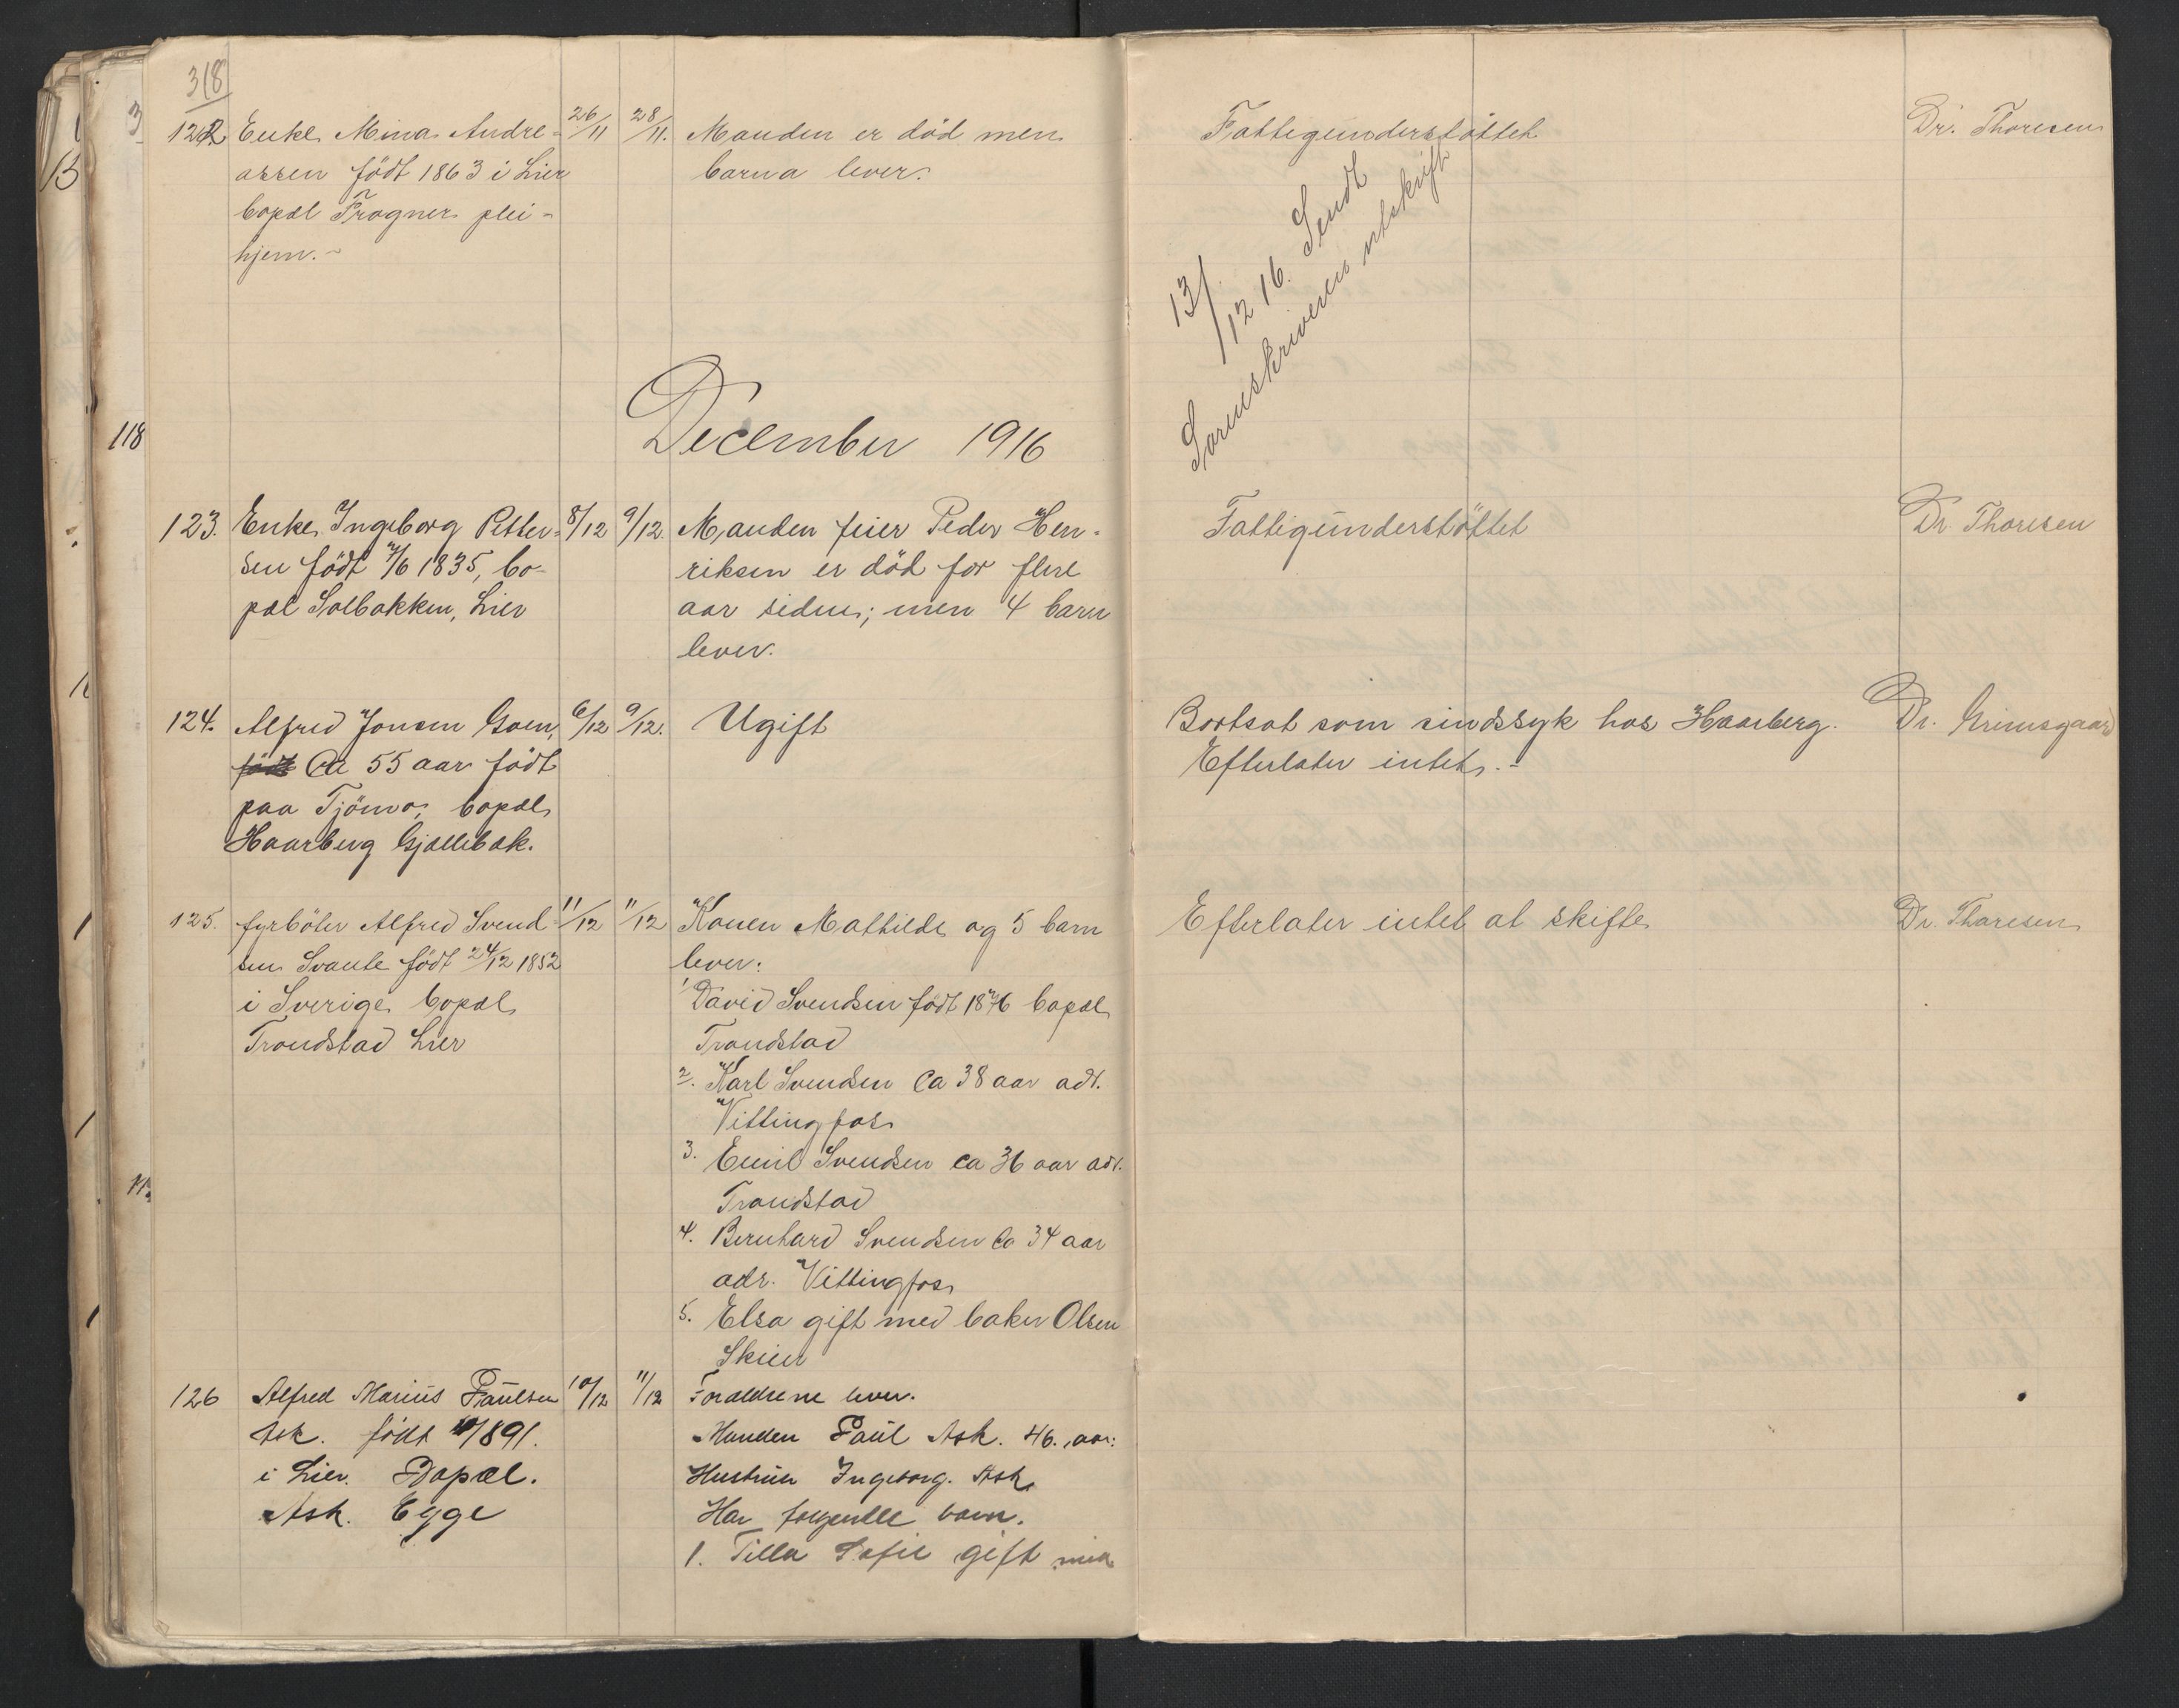 318
122 Enke Mina Andre- 26/11 28/11. Manden er död men Fattigunderstöttet Dr. Thoresen
assen födt 1863 i Lier barna lever.
bopæl Frogner plei-
hjem.-
13/12 16. Sendt
Sorenskriveren utskrift
118
December 1916
123. Enke Ingeborg Petter- 8/12 9/12. Manden feier Peder Hen- Fattigunderstöttet Dr Thoresen
sen födt 7/6 1835, bo- riksen er död for flere
pæl Solbakken, Lier aar siden; men 4 barn
lever.
124. Alfred Jonsen Goen, 6/12 9/12. Ugift Bortsat som sindssyk hos Haarberg. Dr. Grimsgaard
födt Ca 55 aar födt Efterlater intet.-
paa Tjömö, bopæl
Haarberg Gjellebæk.
125. fyrböter Alfred Svend- 11/12 11/12 Konen Mathilde og 5 barn Efterlater intet at skifte Dr. Thoresen
sen Svante födt 24/12 1852 lever:
i Sverige bopæl 1 David Svendsen födt 1876 bopæl
Trondstad Lier Trondstad
2. Karl Svendsen Ca 38 aar adr.
Vittingfoss
3. Emil Svendsen ca 36 aar adr.
Trondstad
4. Bernhard Svendsen Ca 34 aar
adr. Vittingfoss
5. Elsa gift med baker Olsen
Skien
126 Alfred Marius Paulsen 10/12 11/12 Forældrene lever.
Ask. födt 1891. Manden Paul Ask. 46. aar.
i Lier. Bopæl. Hustruen Ingeborg. Ask
Ask. Egge Har følgende barn.
1. Tilla Sofie gift med